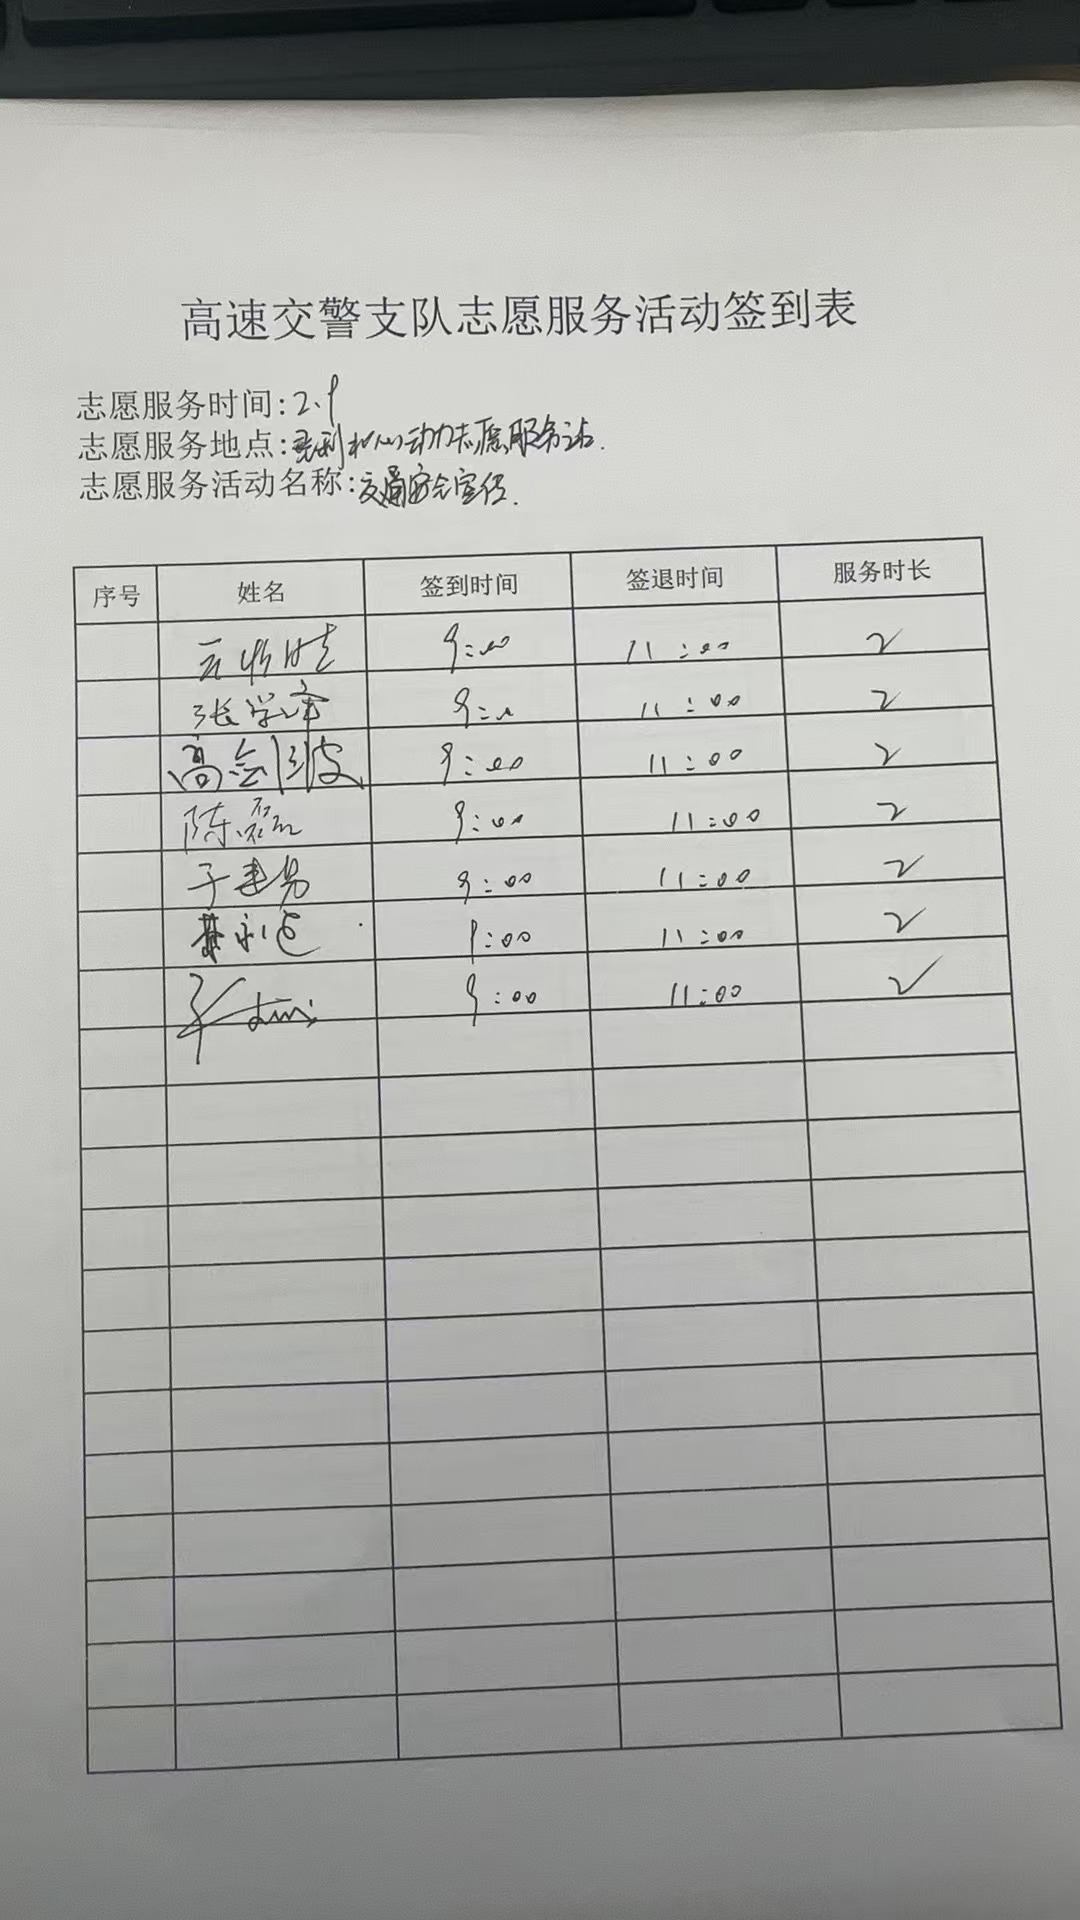 高速交警支队志愿服务活动签到表
志愿服务时间:2.9
志愿服务地点:志愿服务站.
志愿服务活动名称:交通安全宣传.
序号 姓名 签到时间 签退时间 服务时长
9:00 11:00 2
张学军 9:0 11:00 2
高会波 9:00 11:00 2
陈磊 9:00 11:00 2
于建 9:00 11:00 2
9:00 11:00 2
9:00 11:00 2